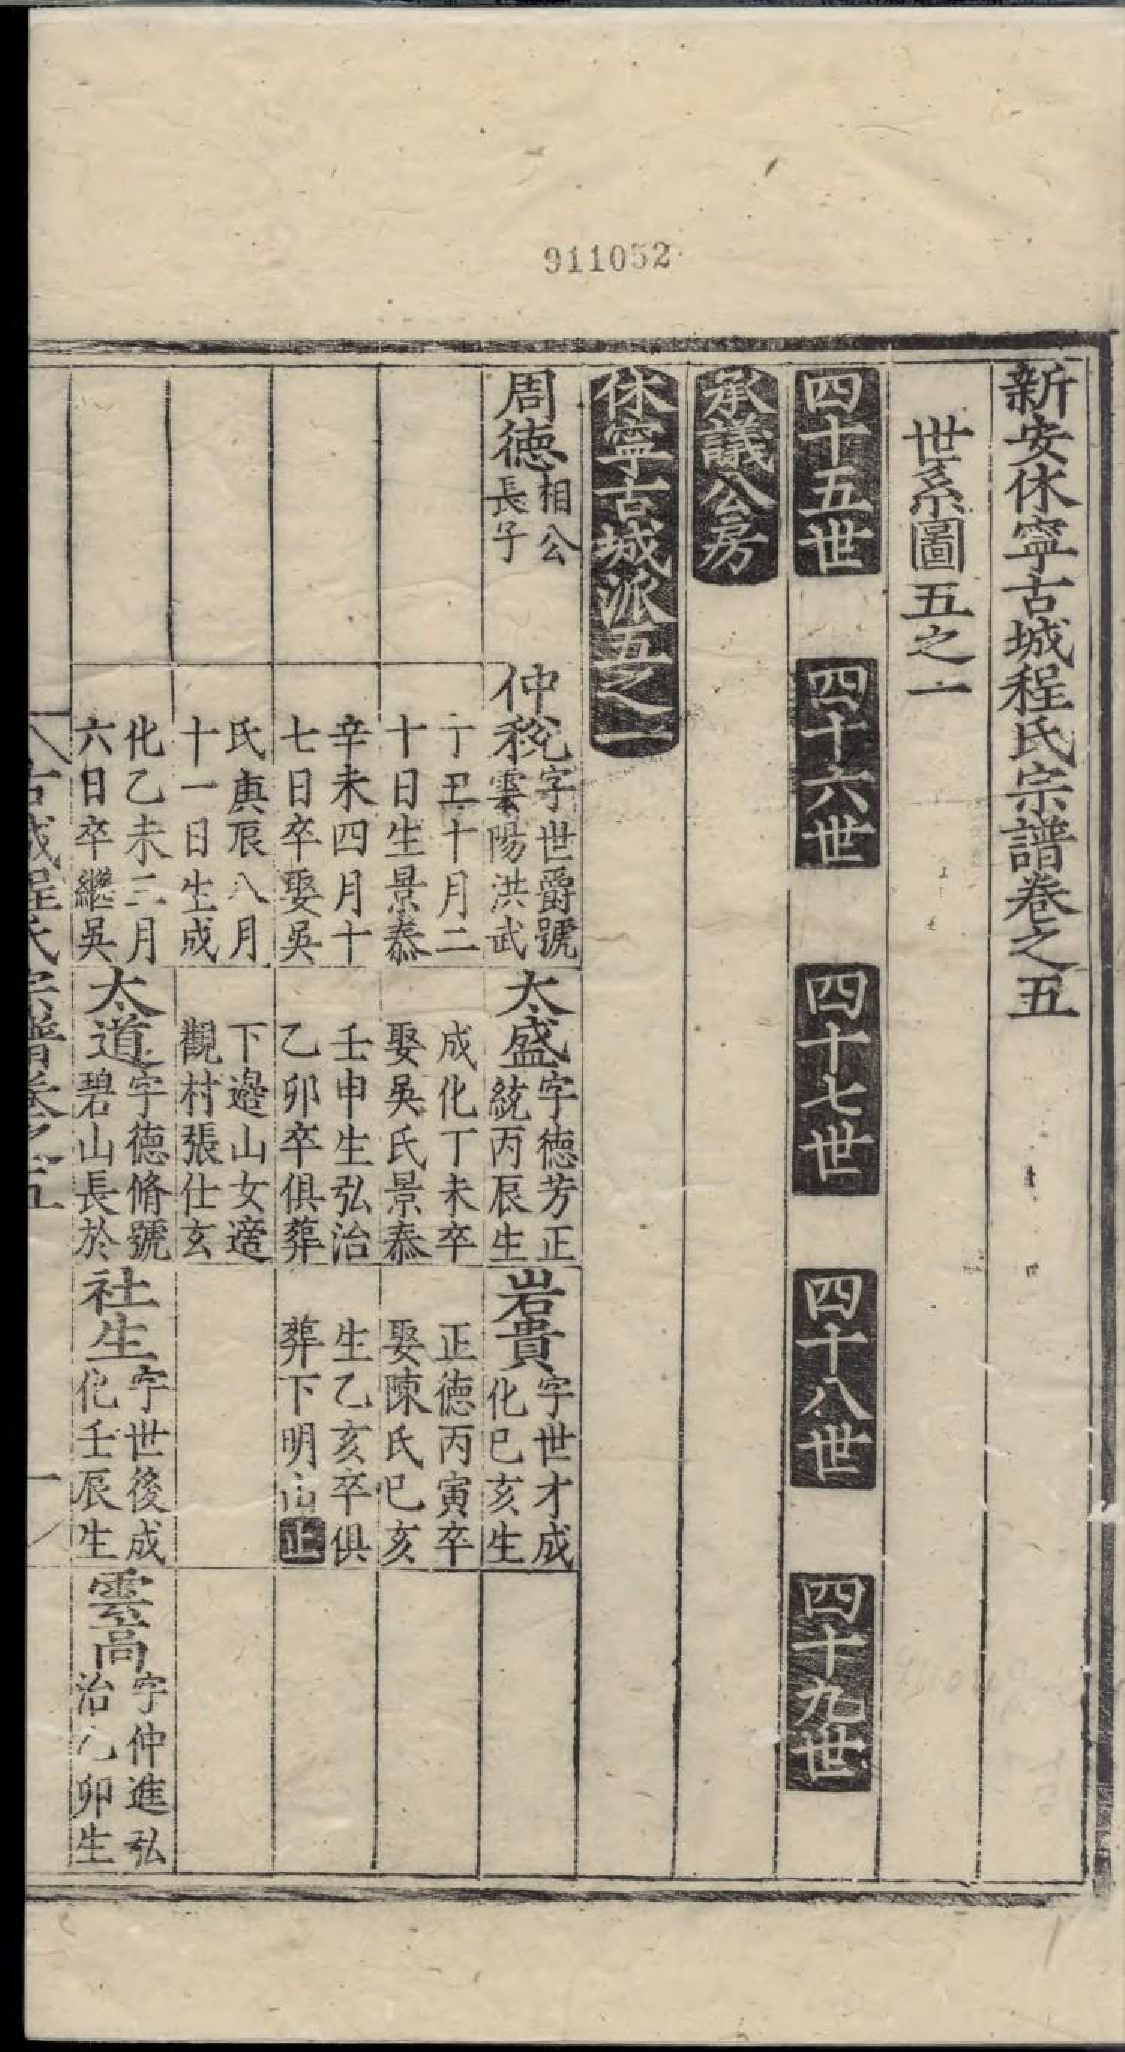 911052
新安休寧古城程氏宗譜卷之五
世系圖五之一
四十五世
四十六世
四十七世
四十八世
四十九世
承議公房
休寧古城派五之一
周德
相公
長子
仲稅
字世爵號
雲陽洪武
丁丑十月二
十日生景泰
辛未四月十
七日卒娶吳
氏庚辰八月
十一日生成
化乙未三月
六日卒繼吳
太盛
字德芳正
統丙辰生
成化丁未卒
娶吳氏景泰
壬申生弘治
乙卯卒俱葬
下邉山女適
觀村張仕玄
岩貴
字世才成
化巳亥生
正德丙寅卒
娶陳氏巳亥
生乙亥卒俱
葬下明止
太道
字德脩號
碧山長於
社生
字世後成
化壬辰生
雲高
字仲進弘
治乙卯生
古城程氏宗譜卷之五
一